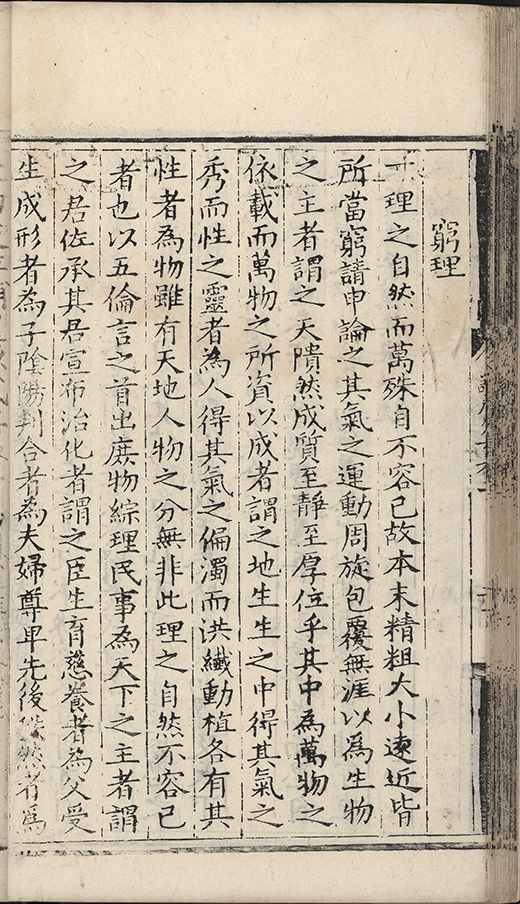 窮理
理之自然而萬殊自不容已故本末精粗大小遠近皆
所當窮請申論之其氣之運動周旋包覆無涯以爲生物
之主者謂之天隤然成質至靜至厚位乎其中為萬物之
依載而萬物之所資以成者謂之地生生之中得其氣之
秀而性之靈者為人得其氣之偏濁而洪纖動植各有其
性者為物雖有天地人物之分無非此理之自然不容已
者也以五倫言之首出庶物綜理民事為天下之主者謂
之君佐承其君宣布治化者謂之臣生育慈養者為父受
生成形者為子陰陽判合者為夫婦尊卑先後然者爲